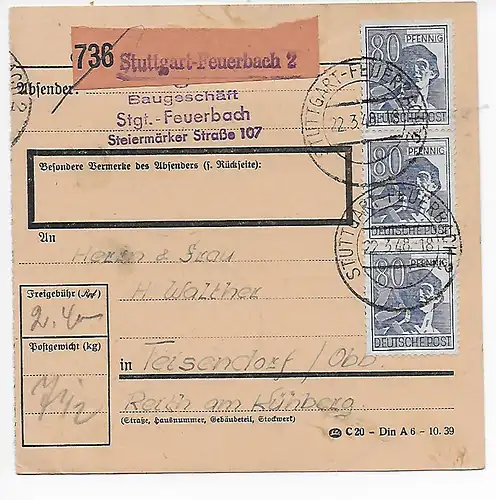 736 Stuttgart-Feuerbach 2
Absender
Baugeschäft
Stgt.-Feuerbach
Steiermärker Straße 107
Besondere Vermerke des Absenders (s. Rückseite):
An
Herrn & Frau
H Walther
Freigebühr (RM)
2.40
Postgewicht (kg)
7 1/2
in Teisendorf / Obb.
Reith am
(Straße, Hausnummer, Gebäudeteil, Stockwerk)
C 20 - Din A 6 - 10. 39
80 PFENNIG
DEUTSCHE POST
80 PFENNIG
DEUTSCHE POST
80 PFENNIG
DEUTSCHE POST
STUTTGART-FEUERBACH
22.3.48
STUTTGART-FEUERBACH 2
22.3.48-18